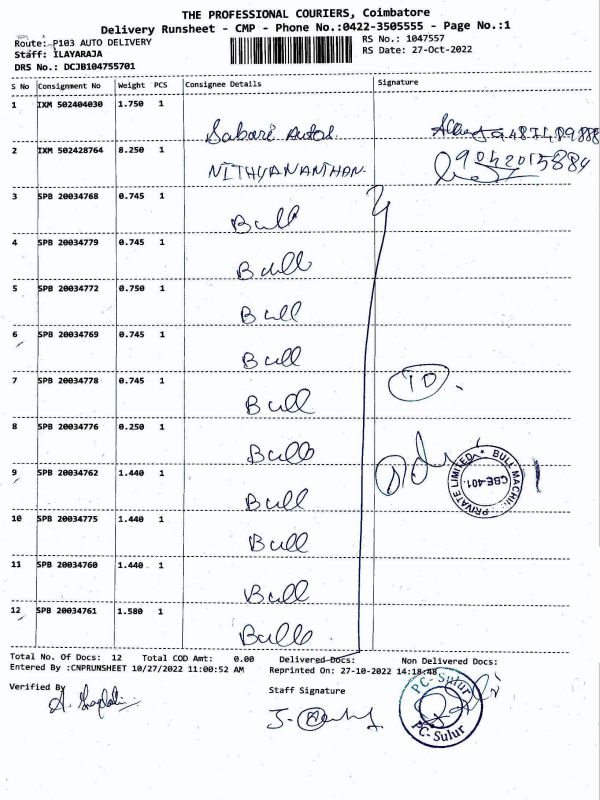 THE PROFESSIONAL COURIERS, Coimbatore
Delivery Runsheet - CMP - Phone No.:0422-3505555 - Page No.:1
Route: P103 AUTO DELIVERY
RS No.: 1047557
Staff: ILAYARAJA
RS Date: 27-Oct-2022
DRS No.: DCJB104755701
S No Consignment No Weight PCS Consignee Details Signature
1 IXM 502404030 1.750 1
Sabari Autos.
2 IXM 502428764 8.250 1
NITHYANANTHAN. 9042015884
3 SPB 20034768 0.745 1
Bull
4 SPB 20034779 0.745 1
Bull
5 SPB 20034772 0.750 1
Bull
6 SPB 20034769 0.745 1
Bull
7 SPB 20034778 0.745 1
Bull
8 SPB 20034776 0.250 1
Bull
9 SPB 20034762 1.440 1
Bull
10 SPB 20034775 1.440 1
Bull
11 SPB 20034760 1.440 1
Bull
12 SPB 20034761 1.580 1
Bull
BULL MACHI PRIVATE LIMITED
CBE-401.
Total No. Of Docs: 12 Total COD Amt: 0.00 Delivered Docs: Non Delivered Docs:
Entered By :CNPRUNSHEET 10/27/2022 11:00:52 AM Reprinted On: 27-10-2022 14:18:48
Verified By
Staff Signature
PC-Sulur
PC-Sulur